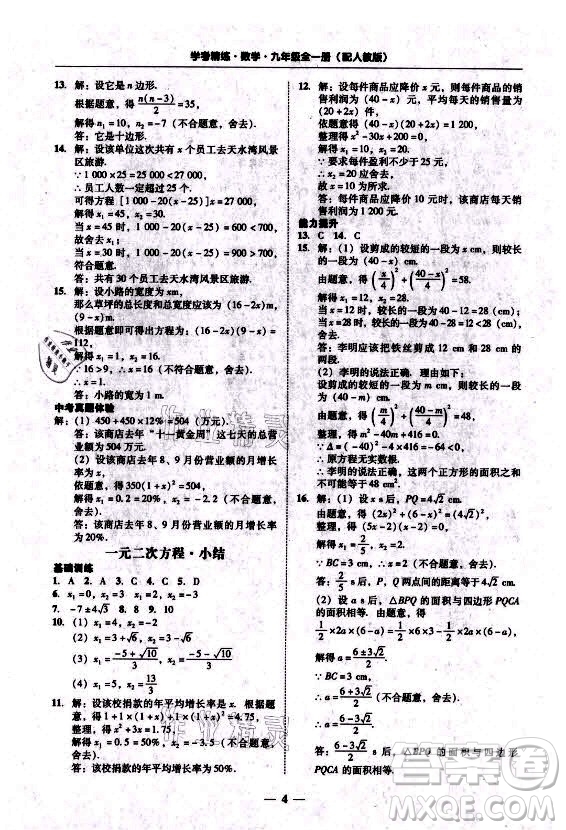 学考精练·数学·九年级全一册（配人教版）
13. 解：设它是 n 边形.
根据题意，得 n(n－3)/2＝35.
解得 n₁＝10，n₂＝－7（不合题意，舍去）.
答：它是十边形.
14. 解：设该单位这次共有 x 个员工去天水湾风景
区旅游.
∵ 1 000×25＝25 000＜27 000，
∴ 员工人数一定超过 25 个.
可得方程 [1 000－20(x－25)]x＝27 000.
解得 x₁＝45，x₂＝30.
当 x＝45 时，1 000－20(x－25)＝600＜700，
故舍去 x₁；
当 x＝30 时，1 000－20(x－25)＝900＞700，
符合题意.
答：共有 30 个员工去天水湾风景区旅游.
15. 解：设小路的宽度为 xm,
那么草坪的总长度和总宽度应该为(16－2x),
(9－x)m.
根据题意即可得出方程为：(16－2x)(9－x)＝
112，
解得 x₁＝1，x₂＝16.
∵16＞9，∴x＝16 不符合题意，舍去，
∴x＝1.
答：小路的宽度为 1 m.
中考真题体验
解：(1) 450＋450×12%＝504（万元）.
答：该商店去年“十一黄金周”这七天的总营
业额为 504 万元.
(2) 设该商店去年 8、9 月份营业额的月增长
率为 x.
依题意，得 350(1＋x)²＝504.
解得 x₁＝0.2＝20%，x₂＝－2.2（不合题意，
舍去）.
答：该商店去年 8、9 月份营业额的月增长率
为 20%.
一元二次方程·小结
基础训练
1. A 2. A 3. C 4. B 5. A
6. x₁＝0，x₂＝3
7. －7±4√3 8. 8 9. 10
10. (1) x₁＝4，x₂＝－2
(2) x₁＝3＋√6，x₂＝3－√6
(3) x₁＝(－5＋√10)/3，x₂＝(－5－√10)/3
(4) x₁＝5，x₂＝－2
11. 解：设该校捐款的年平均增长率是 x. 根据题
意，得 1＋1×(1＋x)＋1×(1＋x)²＝4.75.
整理，得 x²＋3x＝1.75.
解得 x₁＝0.5＝50%，x₂＝－3.5（不合题意，
舍去）.
答：该校捐款的年平均增长率是 50%.
12. 解：设每件商品应降价 x 元，则每件商品的销
售利润为 (40－x) 元，平均每天的销售量为
(20＋2x) 件，
依题意，得 (40－x)(20＋2x)＝1 200，
整理，得 x²－30x＋200＝0，
解得 x₁＝10，x₂＝20.
∵ 要求每件盈利不少于 25 元，
∴ x₂＝20 应舍去，
∴ x＝10.
答：每件商品应降价 10 元时，该商店每天销
售利润为 1 200 元.
能力提升
13. C 14. C
15. 解：(1) 设剪成的较短的一段为 x cm，则较长
的一段为 (40－x) cm.
由题意，得 (x/4)²＋((40－x)/4)²＝58.
解得 x₁＝12，x₂＝28.
当 x＝12 时，较长的为 40－12＝28(cm)；
当 x＝28 时，较长的为 40－28＝12＜28（舍去）.
答：李明应该把铁丝剪成 12 cm 和 28 cm 的
两段.
(2) 李明的说法正确. 理由如下：
设剪成的较短的一段为 m cm，则较长的一段
为 (40－m) cm.
由题意，得 (m/4)²＋((40－m)/4)²＝48.
变形为 m²－40m＋416＝0.
∵Δ＝(－40)²－4×416＝－64＜0，
∴ 原方程无实数根.
∴ 李明的说法正确，这两个正方形的面积之和不
可能等于 48 cm².
16. 解：(1) 设 x s 后，PQ＝4√2 cm.
由题意，得 (2x)²＋(6－x)²＝(4√2)².
整理，得 (5x－2)(x－2)＝0.
解得 x₁＝2/5，x₂＝2.
答：2/5 s 或 2 s 后，P、Q 两点间的距离等于 4√2 cm.
(2) 设 a s 后，△BPQ 的面积与四边形 PQCA
的面积相等. 由题意，得
1/2×2a×(6－a)＝1/2×6×3－1/2×2a×(6－a).
解得 a＝(6±3√2)/2.
∵ BC＝3 cm，
∴ a＝(6＋3√2)/2 舍去，
答：(6－3√2)/2 s 后，△BPQ 的面积与四边形
PQCA 的面积相等.
— 4 —
作业精灵
作业精灵
答案圈
MXQE.COM